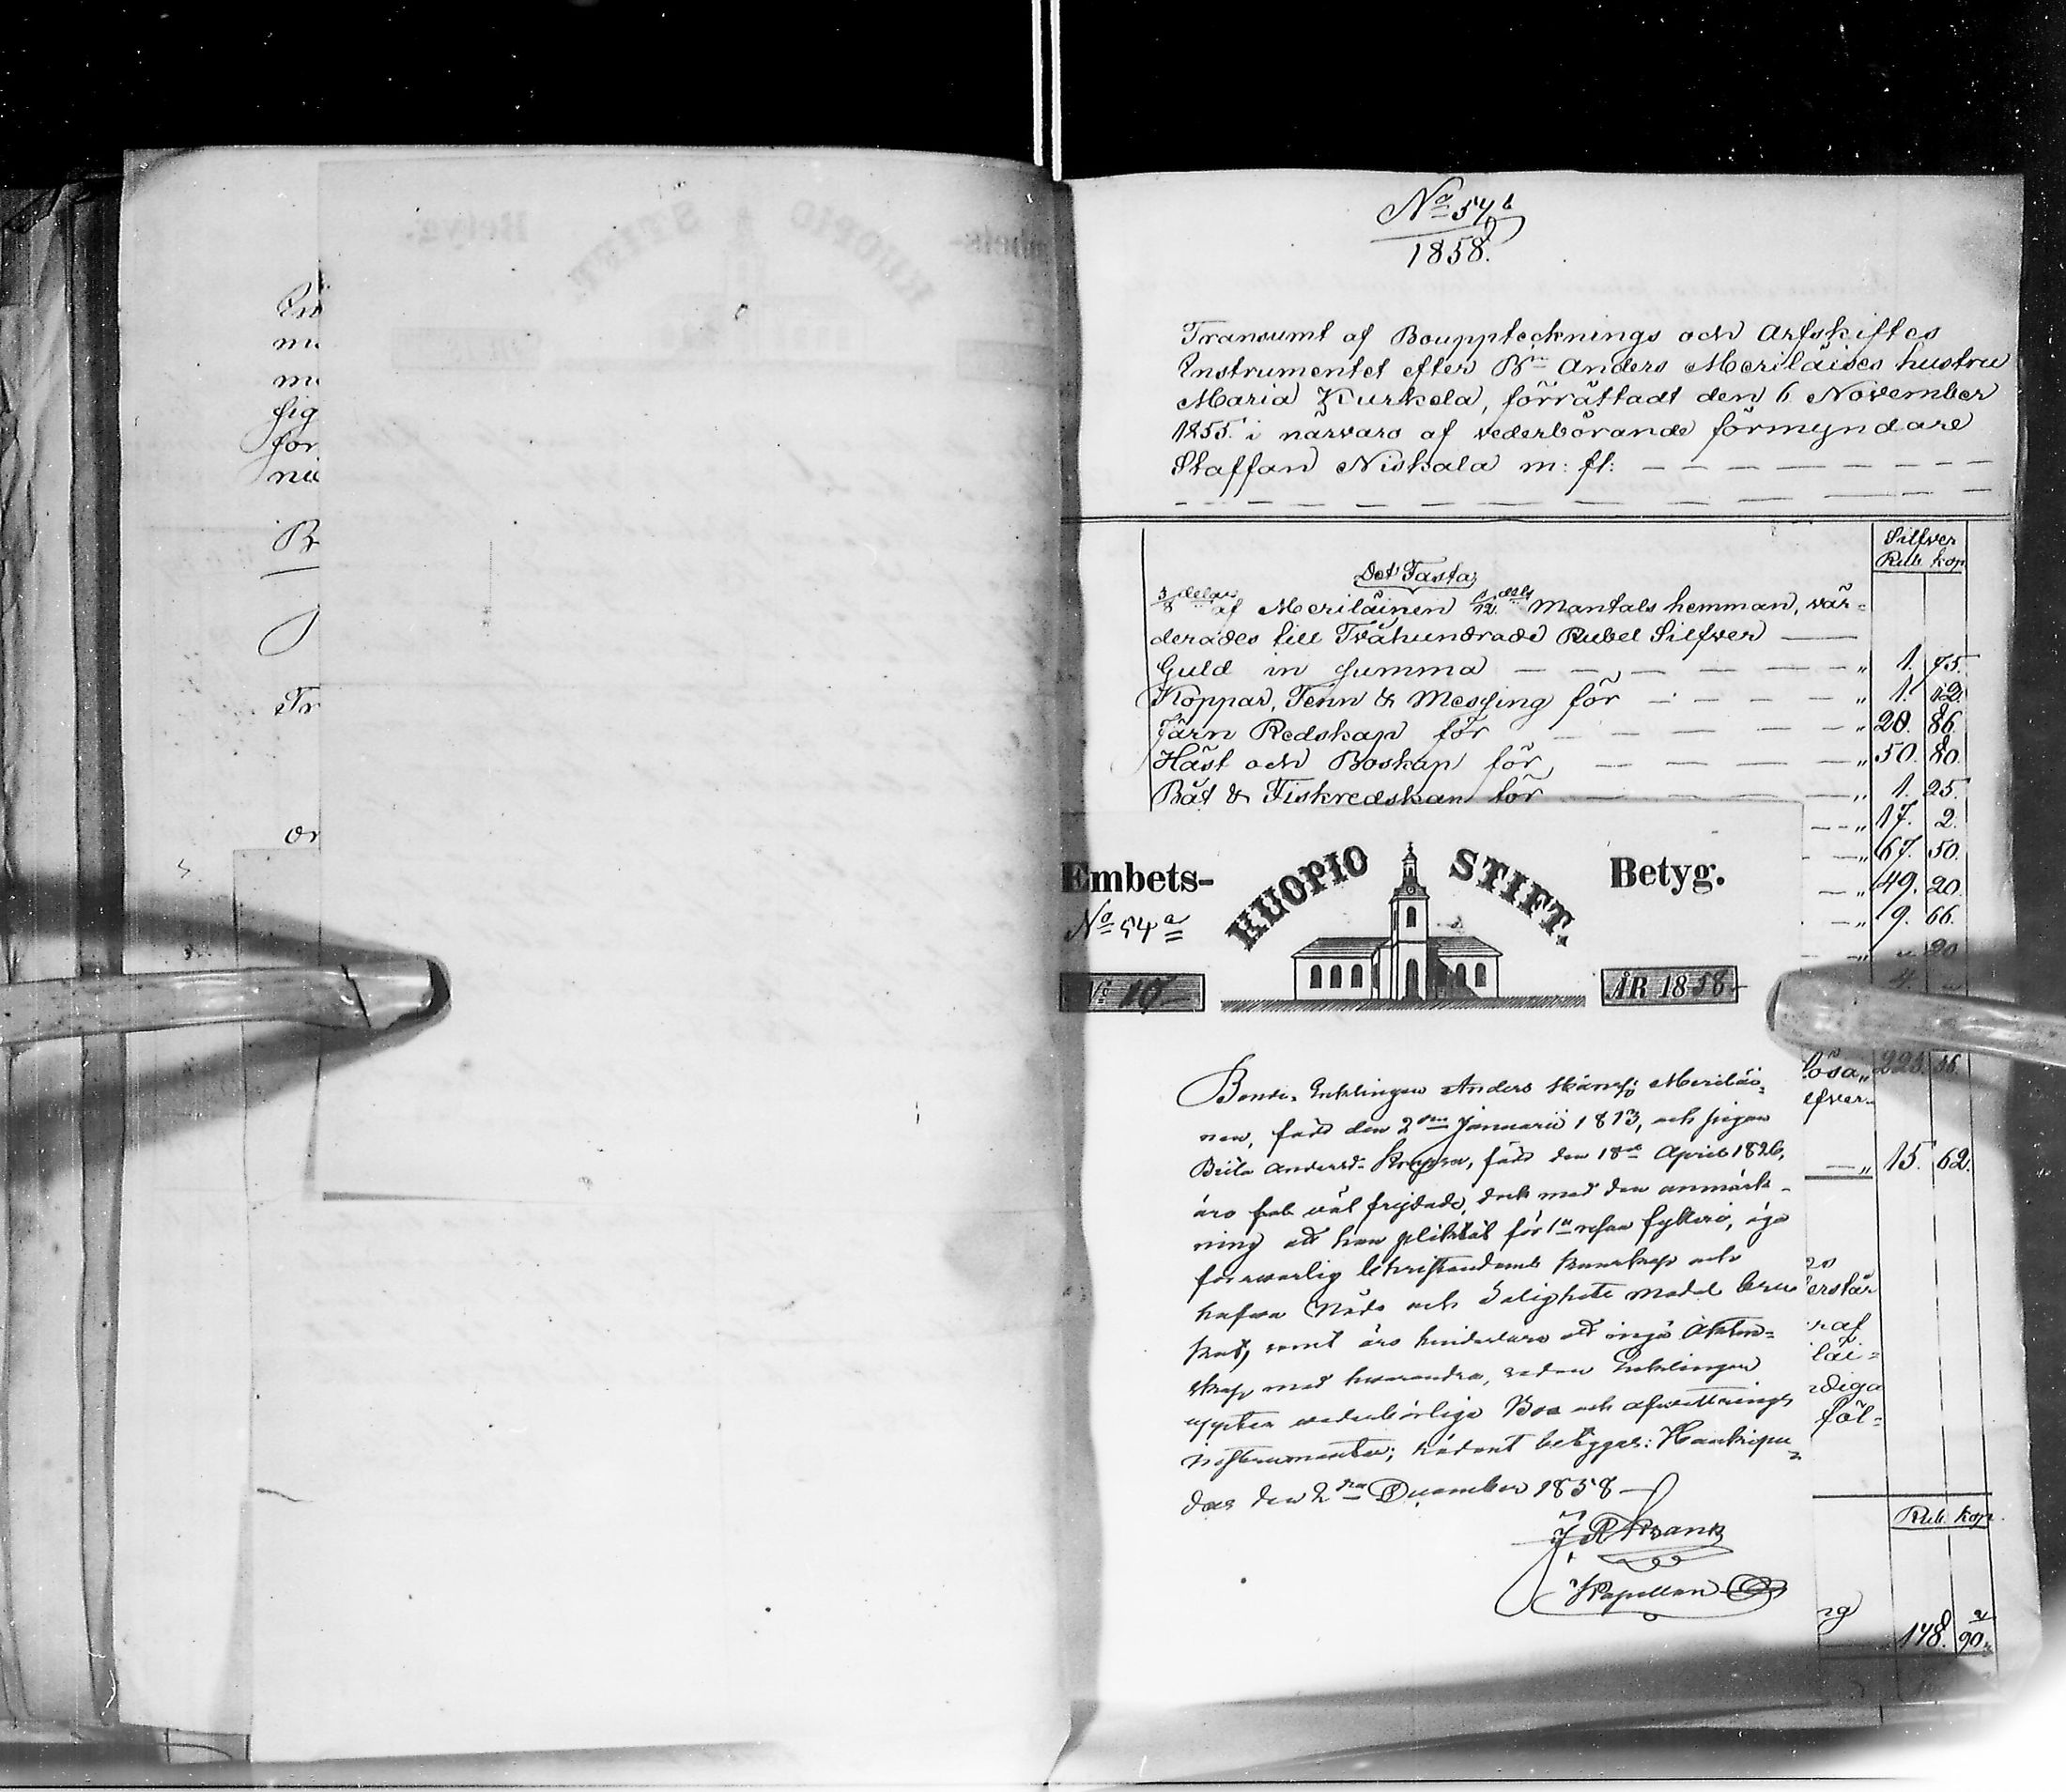 En
me
me
sig
för
nu
B
Tr
or
No 54 b
1858.
Transumt af Bouppteknings och Arfskiftes
Instrumentet efter Bn Anders Meriläises hustru
Maria Kurkela, förrättadt den 6 November
1855 i närvaro af vederbörande förmyndare
Staffan Niskala m: fl:
Silfver
Rub. kop
Det Fasta
3/8 delar af Meriläinen 1/12 dels Mantals hemman, vär=
derades till Tvåhundrade Rubel Silfver
Guld in summa — " 1. 75.
Koppar, Tenn & Messing för — " 1. 12.
Järn Redskap för — " 20. 86.
Häst och Boskap för — " 50. 80.
Båt & Fiskredskap för — " 1. 25.
— " 17. 2.
— " 67. 50.
— " 49. 20.
— " 9. 66.
— " " 20
4. "
lösa " 223. 36.
lfver
— " 15. 62.
erstår
raf
läi=
diga
föl=
Rub. kop.
ng
178. 90
Embets- KUOPIO STIFT. Betyg.
No 54 a
No 10 ÅR 1858
Bonde Enklingen Anders Meriläi=
nen, född den 2 Januarii 1813, och pigan
Brita Andersd. född den 18 April 1826,
äro fräl. väl frejdade, dock med den anmärk-
ning att han pliktat för 1a resan fylleri, äga
försvarlig kristendoms kunskap och
hafva Nåde och Salighets medel bru
kat, samt äro hinderlöse att ingå Äkten=
skap med hvarandra, sedan Enklingen
uppter vederbörliga Boa och afvittrings
instrumenter; sådant betygges: Haukipu
das den 2 December 1858
J R Krank
Kapellan